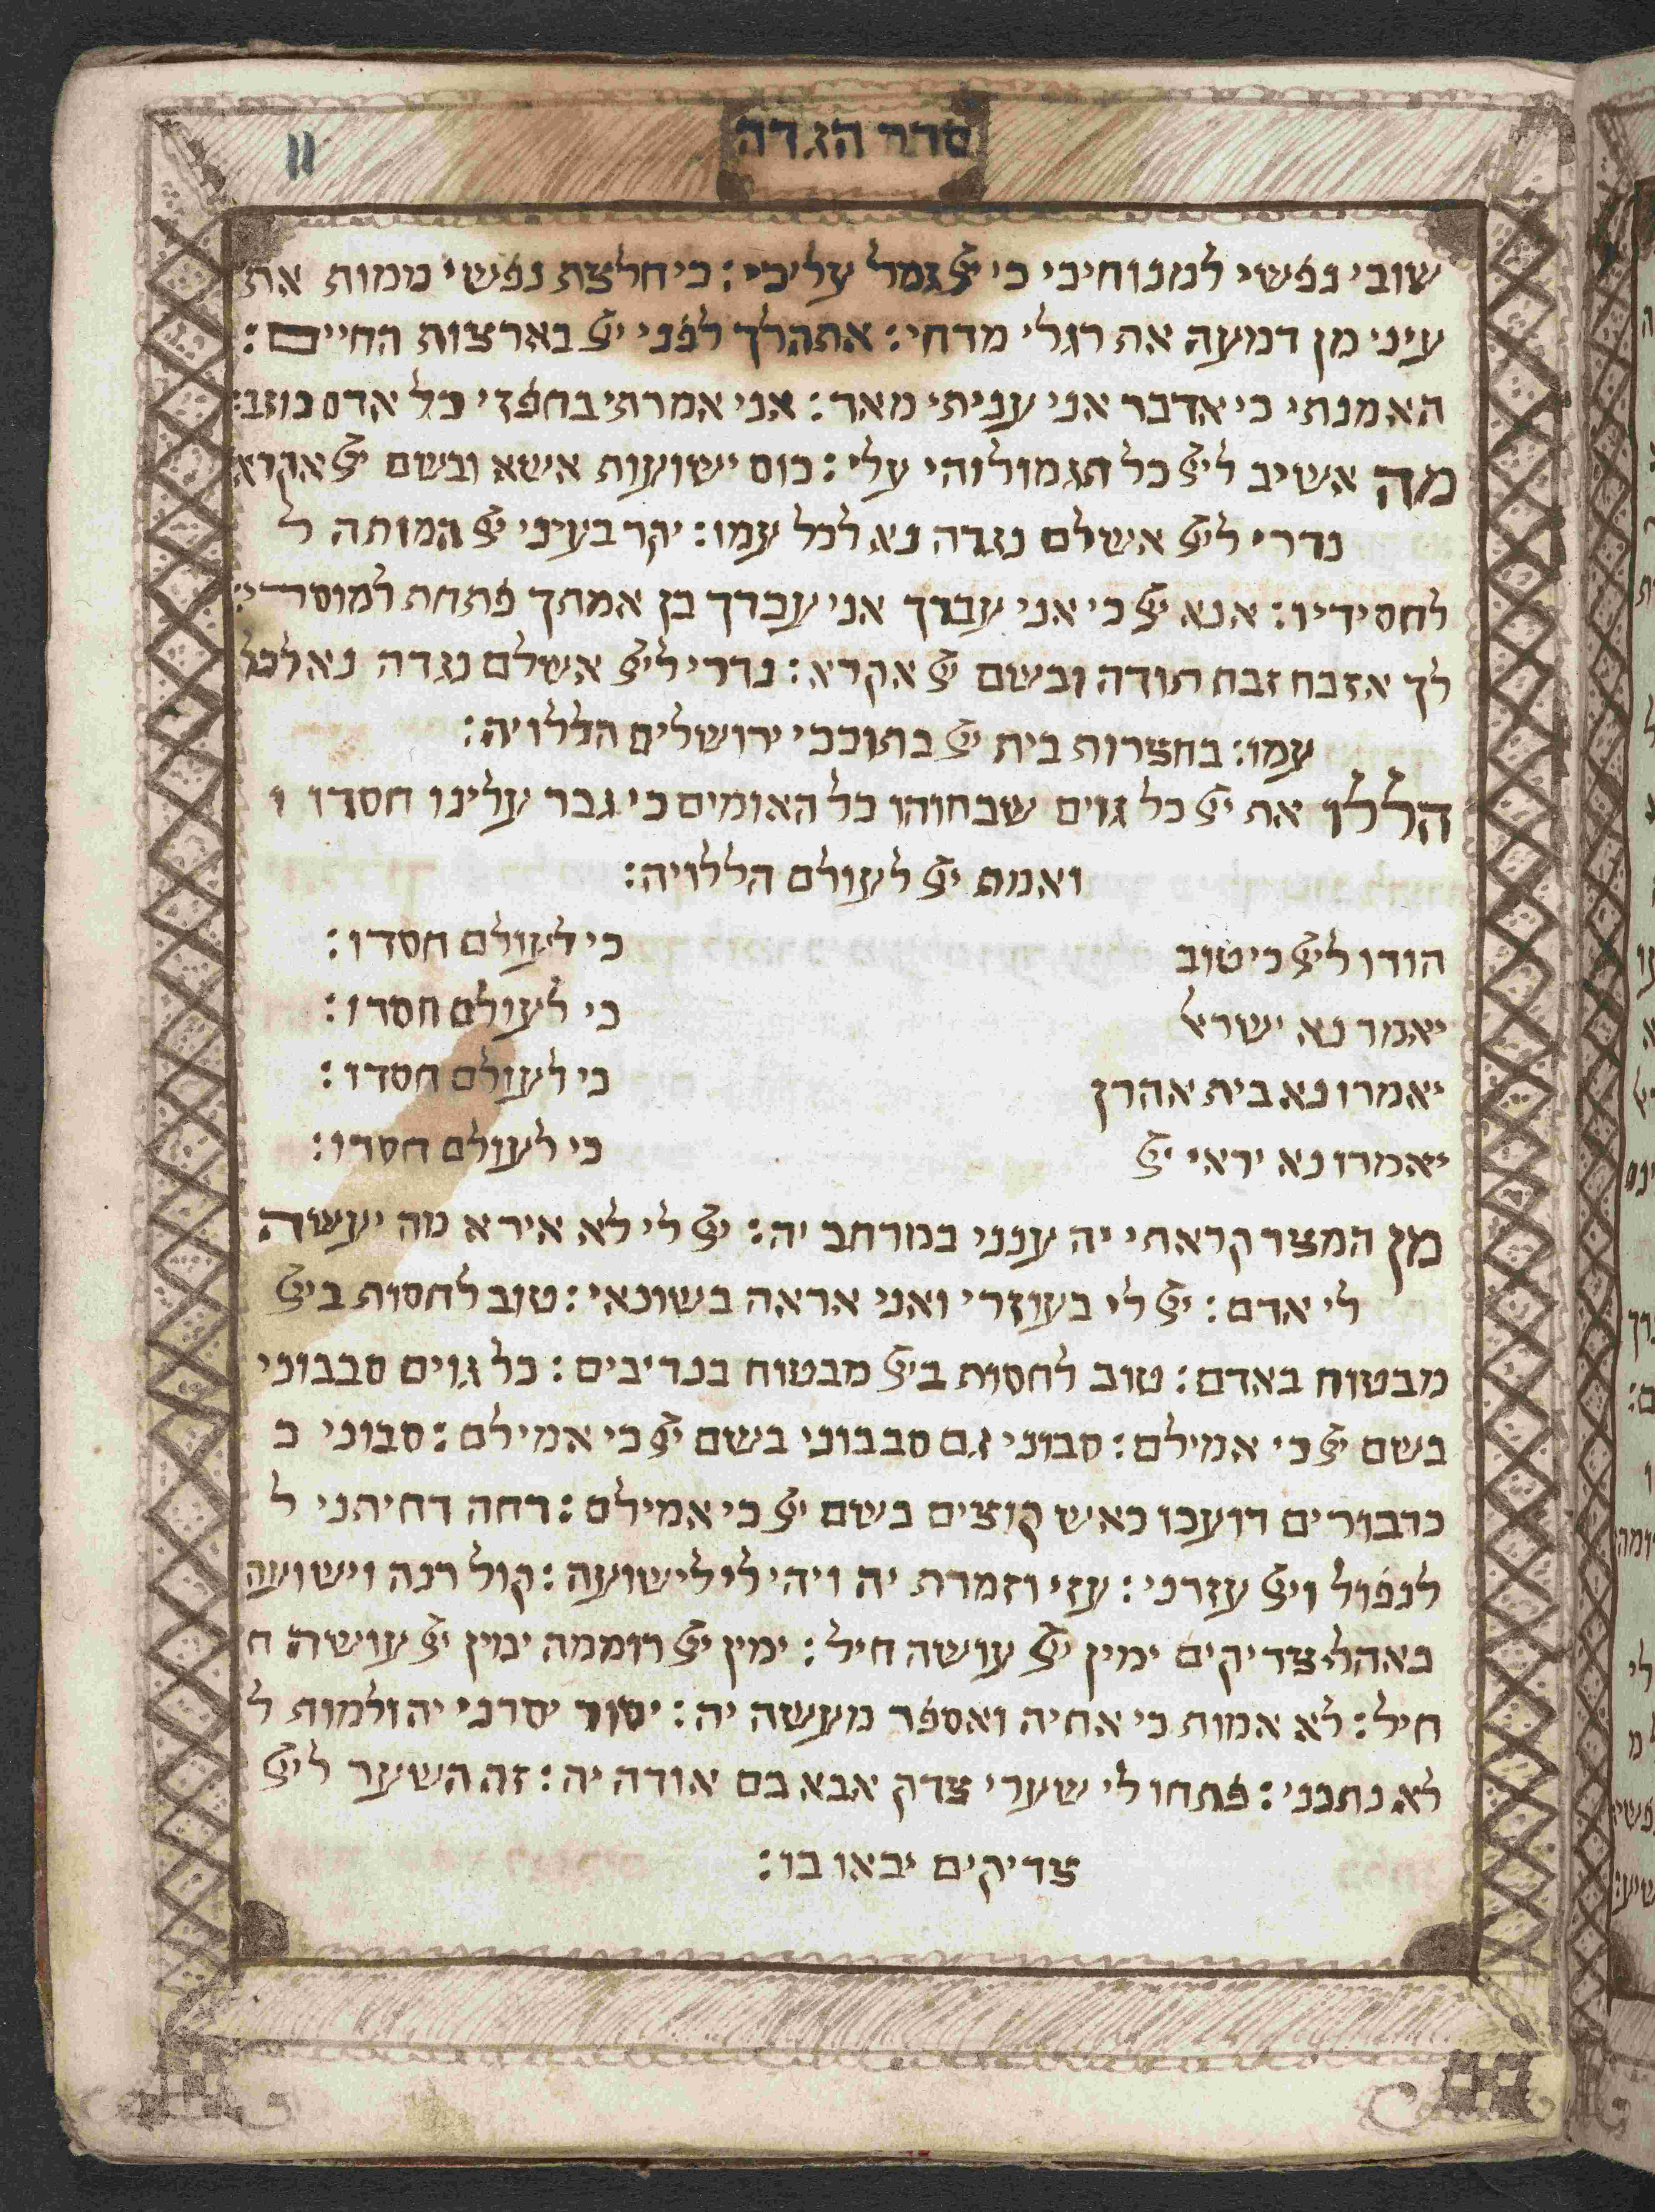 סדר הגדה
11
שובי נפשי למנוחיכי כי יי גמל עליכי: כי חלצת נפשי ממות את
עיני מן דמעה את רגלי מדחי: אתהלך לפני יי בארצות החיים:
האמנתי כי אדבר אני עניתי מאד: אני אמרתי בחפזי כל אדם כוזב:
מה אשיב ליי כל תגמולוהי עלי: כוס ישועות אשא ובשם יי אקרא
נדרי ליי אשלם נגדה נא לכל עמו: יקר בעיני יי המותה ל
לחסידיו: אנא יי כי אני עבדך אני עבדך בן אמתך פתחת למוסרי:
לך אזבח זבח תודה ובשם יי אקרא: נדרי ליי אשלם נגדה נא לכל
עמו: בחצרות בית יי בתוככי ירושלים הללויה:
הללו את יי כל גוים שבחוהו כל האומים כי גבר עלינו חסדו ו
ואמת יי לעולם הללויה:
הודו ליי כי טוב כי לעולם חסדו:
יאמר נא ישראל כי לעולם חסדו:
יאמרו נא בית אהרן כי לעולם חסדו:
יאמרו נא יראי יי כי לעולם חסדו:
מן המצר קראתי יה ענני במרחב יה: יי לי לא אירא מה יעשה
לי אדם: יי לי בעוזרי ואני אראה בשונאי: טוב לחסות ביי
מבטוח באדם: טוב לחסות ביי מבטוח בנדיבים: כל גוים סבבוני
בשם יי כי אמילם: סבוני גם סבבוני בשם יי כי אמילם: סבוני כ
כדבורים דועכו כאש קוצים בשם יי כי אמילם: דחה דחיתני ל
לנפול ויי עזרני: עזי וזמרת יה ויהי לי לישועה: קול רנה וישועה
באהל צדיקים ימין יי עושה חיל: ימין יי רוממה ימין יי עושה ח
חיל: לא אמות כי אחיה ואספר מעשה יה: יסור יסרני יה ולמות ל
לא נתנני: פתחו לי שערי צדק אבא בם אודה יה: זה השער ליי
צדיקים יבאו בו: